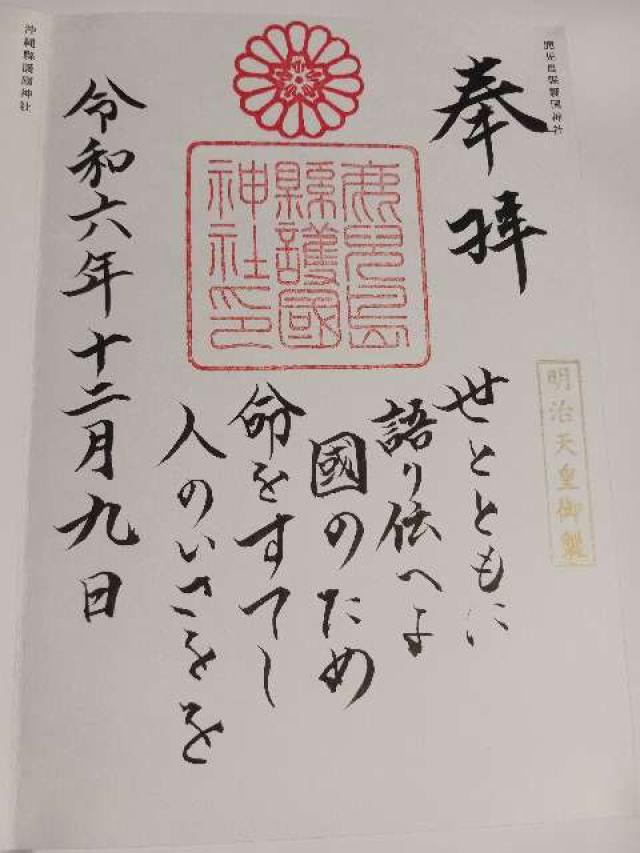 鹿兒島縣護國神社
奉拝
明治天皇御製
世とともに
語り伝へよ
國のため
命をすてし
人のいさをを
鹿兒島
縣護國
神社印
令和六年十二月九日
沖縄縣護國神社